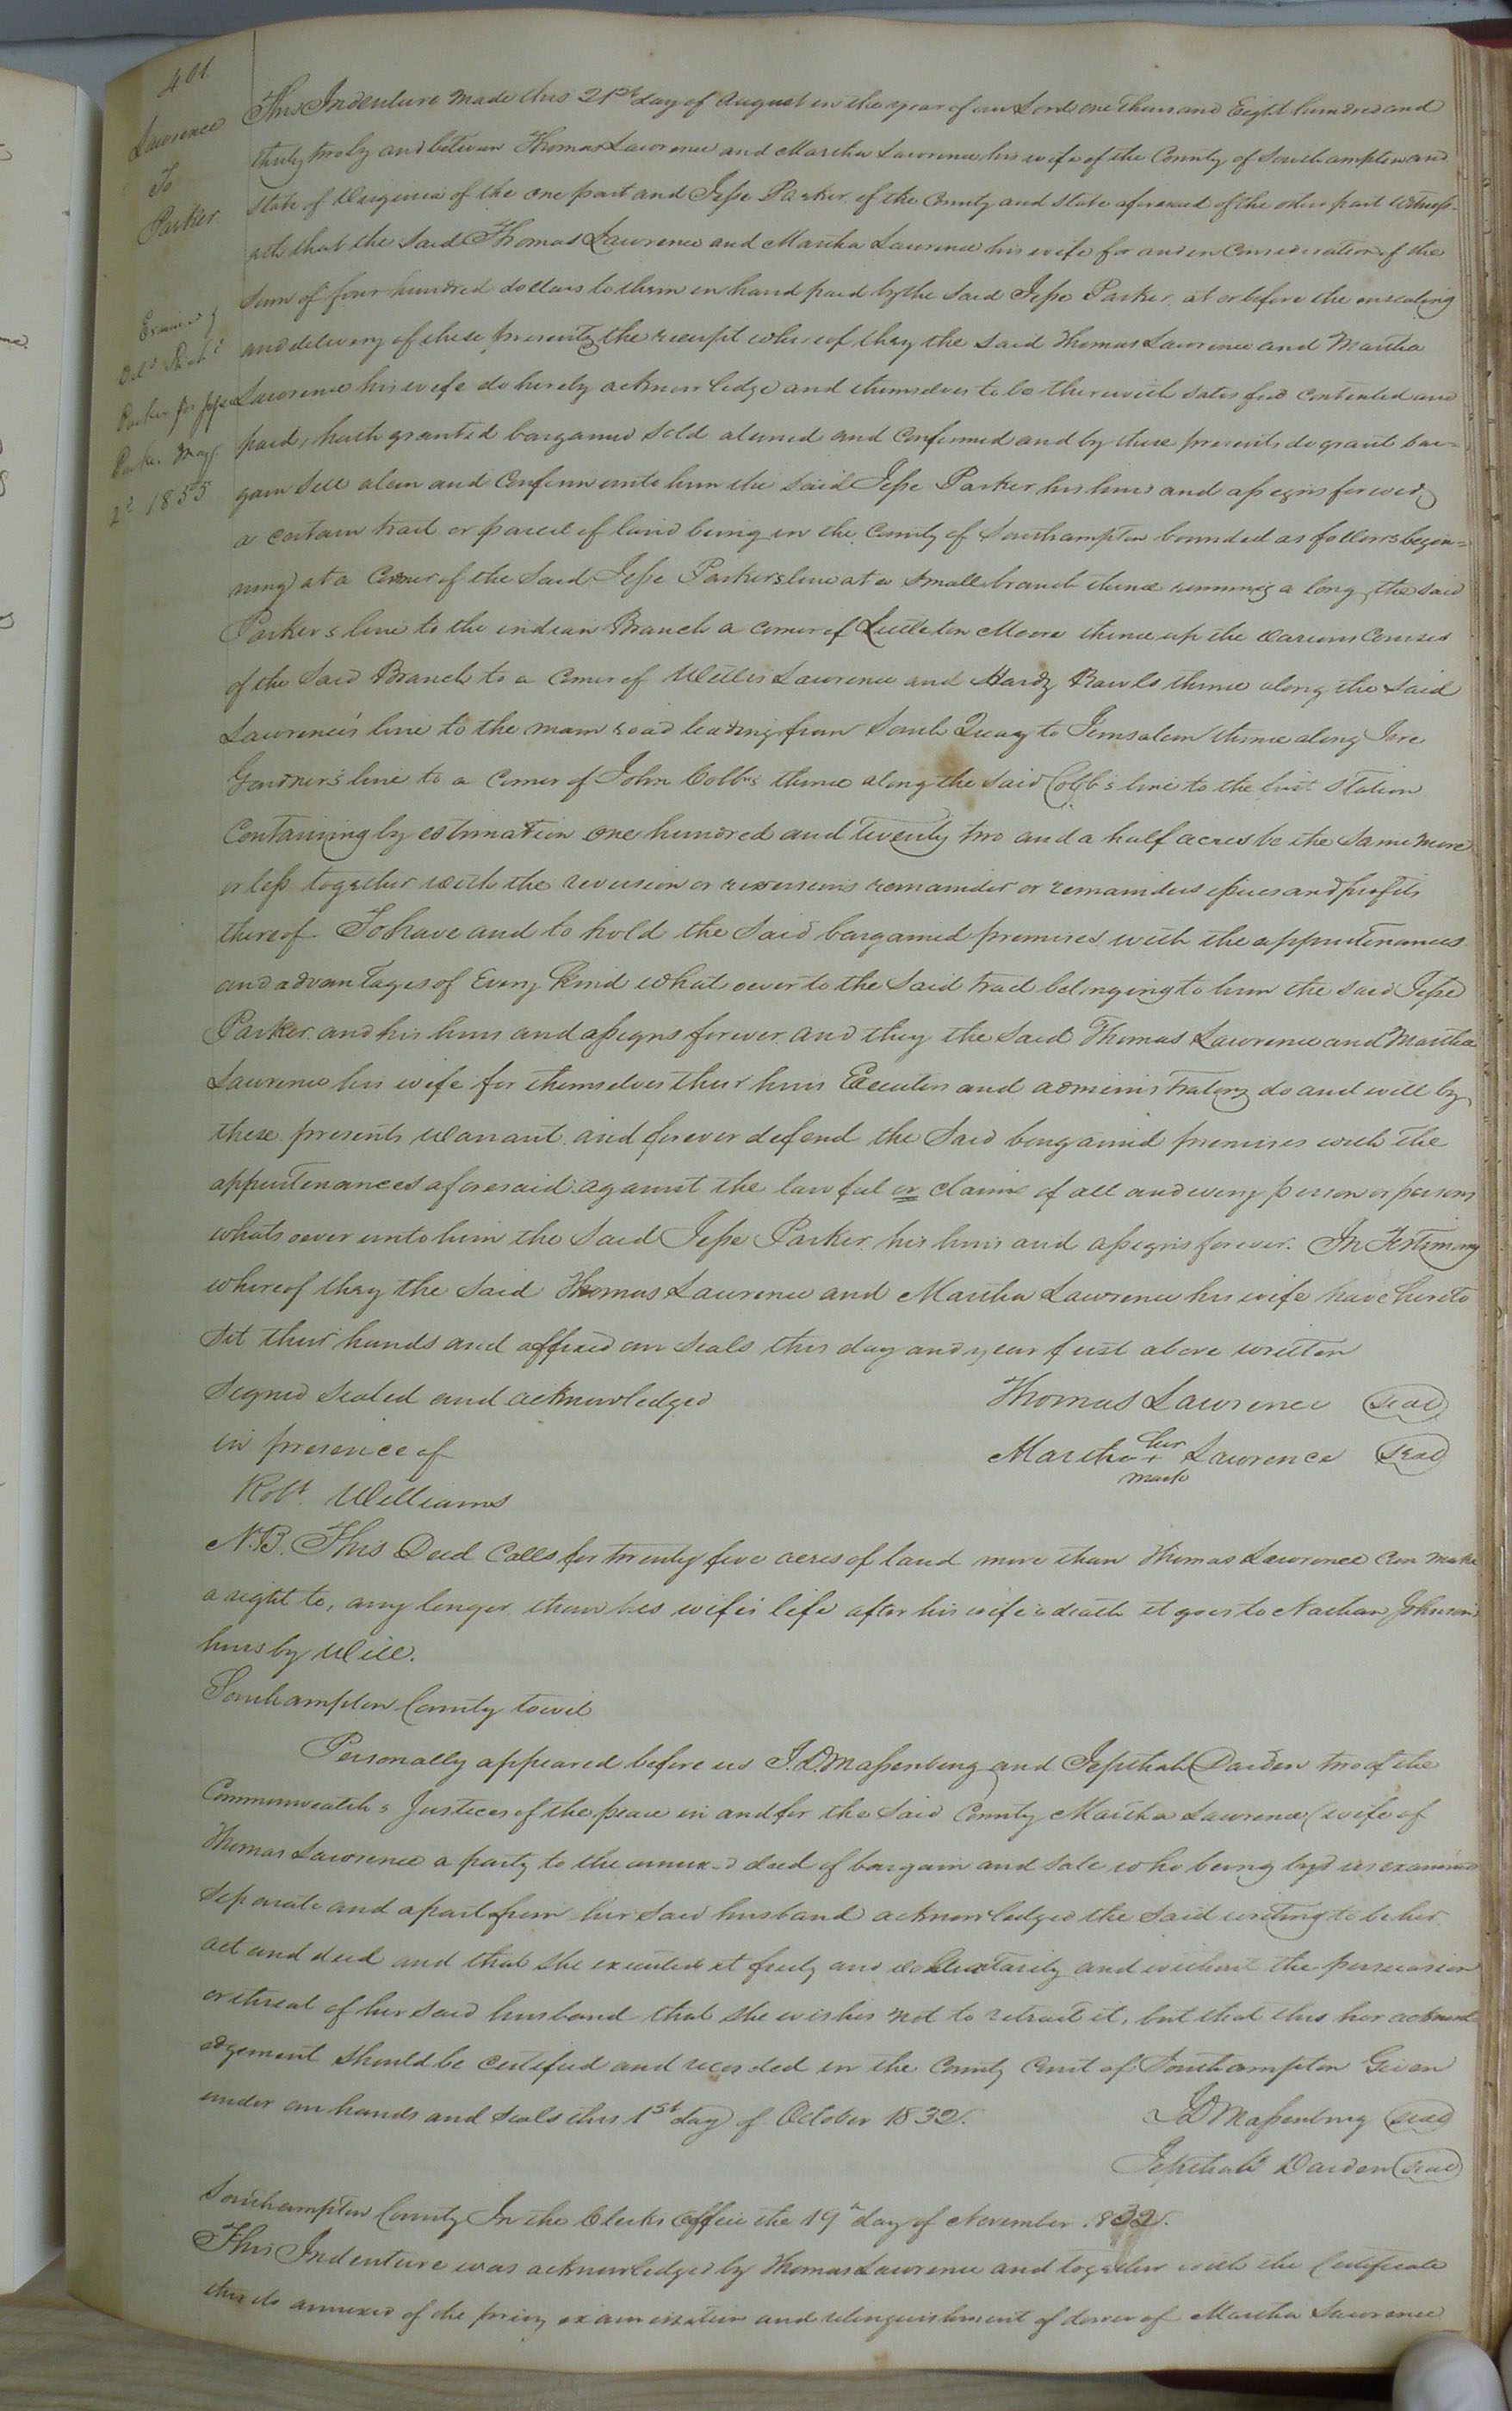 401
Lawrence
To
Parker
Examined &
Parker for Jesse
May
2d 1855
This Indenture made this 21st day of August in the year of our Lord one thousand Eight hundred and
thirty two by and between Thomas Lawrence and Martha Lawrence his wife of the County of Southampton and
state of Virginia of the one part and Jesse Parker of the County and state aforesaid of the other part Witness-
eth that the said Thomas Lawrence and Martha Lawrence his wife for and in Consideration of the
sum of four hundred dollars to them in hand paid by the said Jesse Parker at or before the ensealing
and delivery of these presents the receipt whereof they the said Thomas Lawrence and Martha
Lawrence his wife do hereby acknowledge and themselves to be therewith satisfied contented and
paid, hath granted bargained sold aliened and Confirmed and by these presents do grant bar=
gain sell alien and Confirm unto him the said Jesse Parker his heirs and assigns forever
a certain tract or parcel of land being in the County of Southampton bounded as follows begin=
ning at a Corner of the said Jesse Parkers line at a small branch thence running a long the said
Parkers line to the indian Branch a corner of Littleton Moore thence up the various Courses
of the said Branch to a Corner of Willis Lawrence and Hardy Rawls thence along the said
Lawrence's line to the main road leading from South Quay to Jerusalem thence along Jere
Gardner's line to a corner of John Cobb's thence along the said Cobb's line to the first station
Containing by estimation one hundred and twenty two and a half acres be the same more
or less together with the reversion or reversions remainder or remainders issues and profits
thereof To have and to hold the said bargained premises with the appurtenances
and advantages of Every kind whatsoever to the said tract belonging to him the said Jesse
Parker and his heirs and assigns forever and they the said Thomas Lawrence and Martha
Lawrence his wife for themselves their heirs Executors and administrators do and will by
these presents warrant and forever defend the said bargained premises with the
appurtenances aforesaid against the lawful or claims of all and every person or persons
whatsoever unto him the said Jesse Parker his heirs and assigns forever. In Testimony
whereof they the said Thomas Lawrence and Martha Lawrence his wife have hereto
set their hands and affixed our seals this day and year first above written
Signed sealed and acknowledged Thomas Lawrence seal
in presence of Martha her + mark Lawrence seal
Robt. Williams
N.B. This Deed Calls for twenty five acres of land more than Thomas Lawrence can make
a right to, any longer than his wife's life after his wife's death it goes to Nathan Johnson's
heirs by Will.
Southampton County towit
Personally appeared before us J.D. Massenburg and Jepthah Darden two of the
Commonwealth's Justices of the peace in and for the said County Martha Lawrence wife of
Thomas Lawrence a party to the annexed deed of bargain and sale who being by us examined
separate and apart from her said husband acknowledged the said writing to be her
act and deed and that she executed it freely and voluntarily and without the persuasion
or threat of her said husband that she wishes not to retract it, but that this her acknowl
edgement should be certified and recorded in the County Court of Southampton Given
under our hands and seals this 1st day of October 1832. JD Massenburg seal
Jepthah Darden seal
Southampton County In the Clerks Office the 19th day of November 1832.
This Indenture was acknowledged by Thomas Lawrence and together with the Certificate
thereto annexed of the privy examination and relinquishment of dower of Martha Lawrence